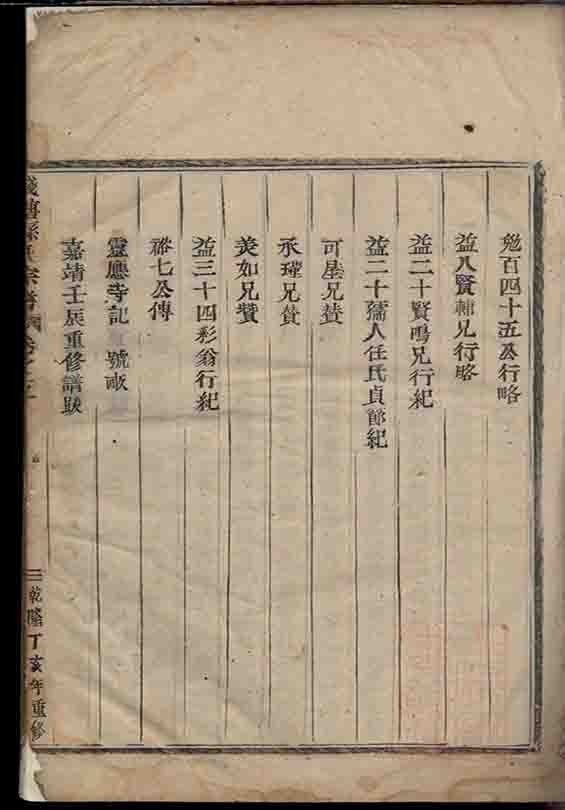 勉百四十五公行略
益八賢輔兄行略
益二十賢鳴兄行紀
益二十孺人任氏貞節紀
可墨兄贊
承瓘兄贊
美如兄贊
益三十四彩翁行紀
裕七公傳
靈應寺記 號畝
嘉靖壬辰重修譜跋
孫氏宗譜 卷之
乾隆丁亥年重修